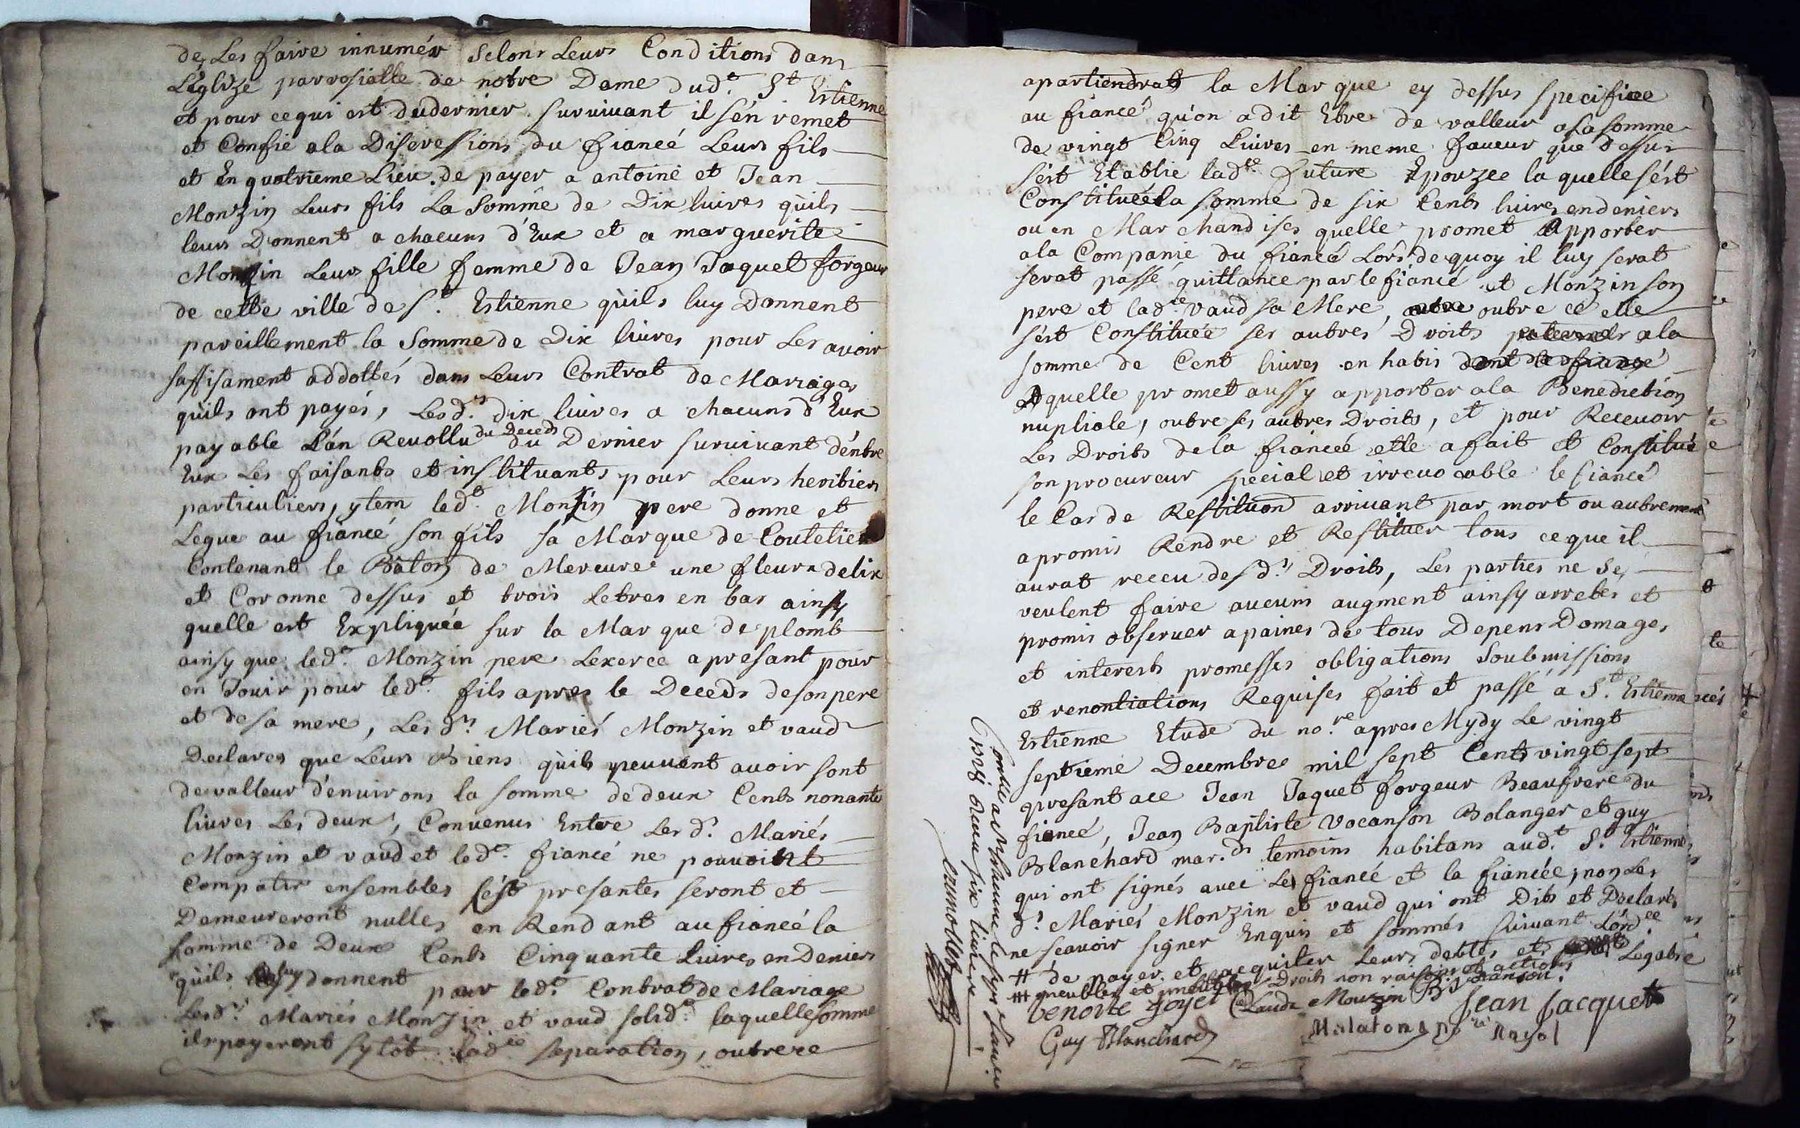 de Les faire innumér selons Leurs Conditions dans
Léglize parrosialle de notre Dame dud.t S.t Estienne
et pour ce qui est du dernier survivant il s'én remet
et Confie a la Discression du fiancé Leurs fils
et En quatrieme Lieu de payer a antoine et Jean
Monzin Leurs fils La Somme de Dix livres qu'ils
leurs Donnent a chacuns d'Eux et a marguerite
Monzin Leurs fille femme de Jean Jaquet forgeur
de cette ville de S.t Estienne qu'ils luy Donnent
pareillement la Somme de Dix livres pour Les avoir
saffisament addottés dans Leurs Contrat de Mariages
qu'ils ont payés, Lesd.es dix livres a chacuns d'Eux
payable L'án Revollu du Deceds du Dernier survivant d'éntre
Eux Les faisants et instituants pour Leurs heritiers
particuliers, ytem led.t Monzin pere donne et
Legue au fiancé son fils sa Marque de Coutelier
Contenant le Bâton de Mercure une fleur delix
et Coronne dessus et trois Letres en bas ainsy
quelle est Expliquée sur la Marque de plomb
ainsy que led.t Monzin pere Lexerce apresant pour
en Jouir pour led.t fils apres le Deceds de son pere
et de sa mere, Les d.ts Mariés Monzin et vaud
Declares que Leurs Biens qu'ils peuvent avoir sont
de valleur d'environs la somme de deux Cents nonante
livres Les deux, Convenus Entre Les d.s Mariés
Monzin et vaud et led.t fiancé ne pouvoint
Compatir ensembles Ces presantes seront et
Demeureront nulles en Rendant au fiancé la
somme de Deux Cents Cinquante Livres en Deniers
qu'ils luy donnent pour led.t Contrat de Mariage
Lesd.ts Mariés Monzin et vaud solid.t laquelle somme
ils payeront sytôt lad.te separation, outre ce
apartiendrat la Marque cy dessus specifiee
au fiancé qu'on a dit Etre de valleur a la somme
de vingt Cinq Livres en meme faveur que dessus
s'ést Etablie lad.te future Epouzee la quelle s'ést
Constituée la somme de six Cents livres en deniers
ou en Marchandises quelle promet Apporter
a la Companie du fiancé Lors de quoy il luy serat
serat passé quittance par le fiancé et Monzin son
pere et lad.te Vaud sa Mere, outre ce elle
s'ést Constituée ses autres Droits a la
somme de Cent livres en habis
Laquelle promet aussy apporter a la Benediction
nuptiale, outre ses autres Droits, et pour Recevoir
Les Droits de la fiancée elle a fait et Constitué
son procureur special et irrevocable le fiancé
le Cas de Restitution arrivant par mort ou autrement
a promis Rendre et Restituer tous ce que il
aurat receu desd.ts Droits, Les parties ne se
veulent faire aucuns augment ainsy arretés et
promis observer a paines de tous Depens Domages
et interests promesses obligations Soubmissions
et renontiations Requises fait et passé a S.t Estienne
Estienne Etude du no.re apres Mydy Le vingt
septieme Decembre mil sept Cents vingt sept
presant a ce Jean Jaquet forgeur Beaufrere du
fiancé, Jean Baptiste vocanson Bolanger et guy
Blanchard mar.d temoins habitans aud.t S.t Estienne
qui ont signés avec Les fiancé et la fiancée, non Les
d.s Mariés Monzin et vaud qui ont Dits et Declarés
ne scavoir signer Enquis et sommés suivant L'órd.ce
# de payer et acquiter Leurs debtes et Legats
## meubles et immeubles Droits non raisons et actions
benoite Joyet Claude Mouzin B: vocanson Jean Jacquet
Guy Blanchard Malaton Mayol
Contlé a St Etienne le 3me Janvier
1728 Receu six livres